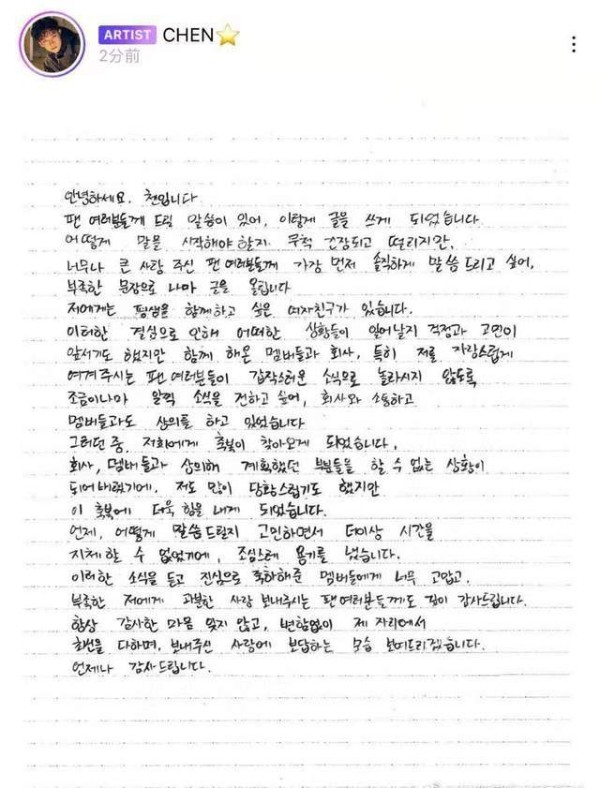 ARTIST CHEN⭐
2分前
안녕하세요. 첸입니다
팬 여러분들께 드릴 말씀이 있어, 이렇게 글을 쓰게 되었습니다
어떻게 말을 시작해야 할지 무척 긴장되고 떨리지만,
너무나 큰 사랑 주신 팬 여러분들께 가장 먼저 솔직하게 말씀드리고 싶어,
부족한 문장으로 나마 글을 올립니다
저에게는 평생을 함께하고 싶은 여자친구가 있습니다.
이러한 결심으로 인해 어떠한 상황들이 일어날지 걱정과 고민이
앞서기도 했지만 함께 해온 멤버들과 회사, 특히 저를 자랑스럽게
여겨주시는 팬 여러분들이 갑작스러운 소식으로 놀라시지 않도록
조금이나마 일찍 소식을 전하고 싶어, 회사와 소통하고
멤버들과도 상의를 하고 있었습니다
그러던 중, 저희에게 축복이 찾아오게 되었습니다.
회사, 멤버들과 상의해 계획했던 부분들을 할 수 없는 상황이
되어버렸기에, 저도 많이 당황스럽기도 했지만
이 축복에 더욱 힘을 내게 되었습니다.
언제, 어떻게 말씀드릴지 고민하면서 더이상 시간을
지체할 수 없었기에, 조심스레 용기를 냈습니다.
이러한 소식을 듣고 진심으로 축하해준 멤버들에게 너무 고맙고,
부족한 저에게 과분한 사랑 보내주시는 팬여러분들께도 깊이 감사드립니다.
항상 감사한 마음 잊지 않고, 변함없이 제 자리에서
최선을 다하며, 보내주신 사랑에 보답하는 모습 보여드리겠습니다.
언제나 감사드립니다.